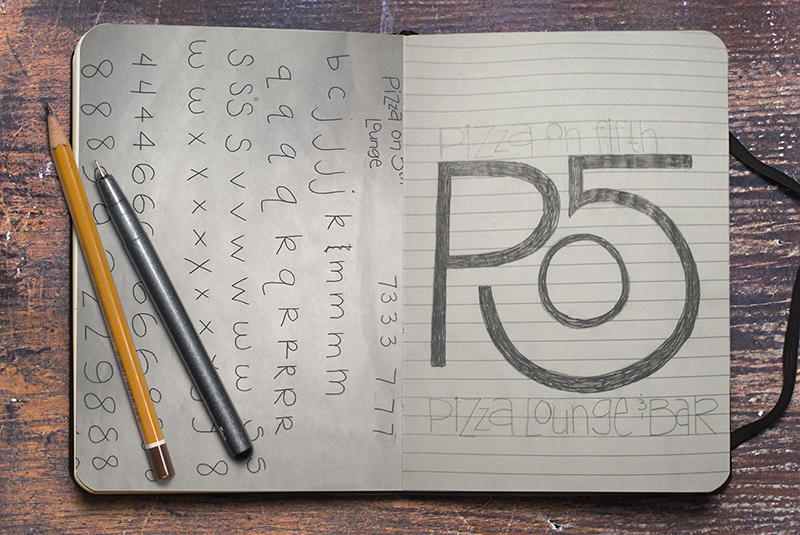 pizza on
lounge
7 3 3 3 7 7 7
b c j J J j k & m m m m m
q q q q k q R R R R R
S S S S v v w w w w w 5 5
w w x x x x X x x x y 8
4 4 4 4 6 6 6 6 6 8
8 8 8 2 2 9 8 8 8 8
pizza on fifth
P5
Pizza Lounge & BaR